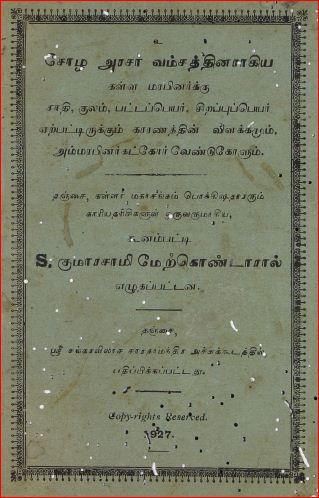 உ
சோழ அரசர் வம்சத்தினராகிய
கள்ள மரபினர்க்கு
சாதி, குலம், பட்டப்பெயர், சிறப்புப்பெயர்
ஏற்பட்டிருக்கும் காரணத்தின் விளக்கமும்,
அம்மரபினர்கட்கோர் வேண்டுகோளும்.
தஞ்சை, கள்ளர் மகாசங்கம் பொக்கிஷதாரரும்
காரியதரிசிகளுள் ஒருவருமாகிய,
S. குமாரசாமி மேற்கொண்டாரால்
எழுதப்பட்டன.
தஞ்சை,
ஸ்ரீ சங்கரவிலாச சாரதாமந்திர அச்சுக்கூடத்தில்
பதிப்பிக்கப்பட்டது.
Copy-rights Reserved.
1927.